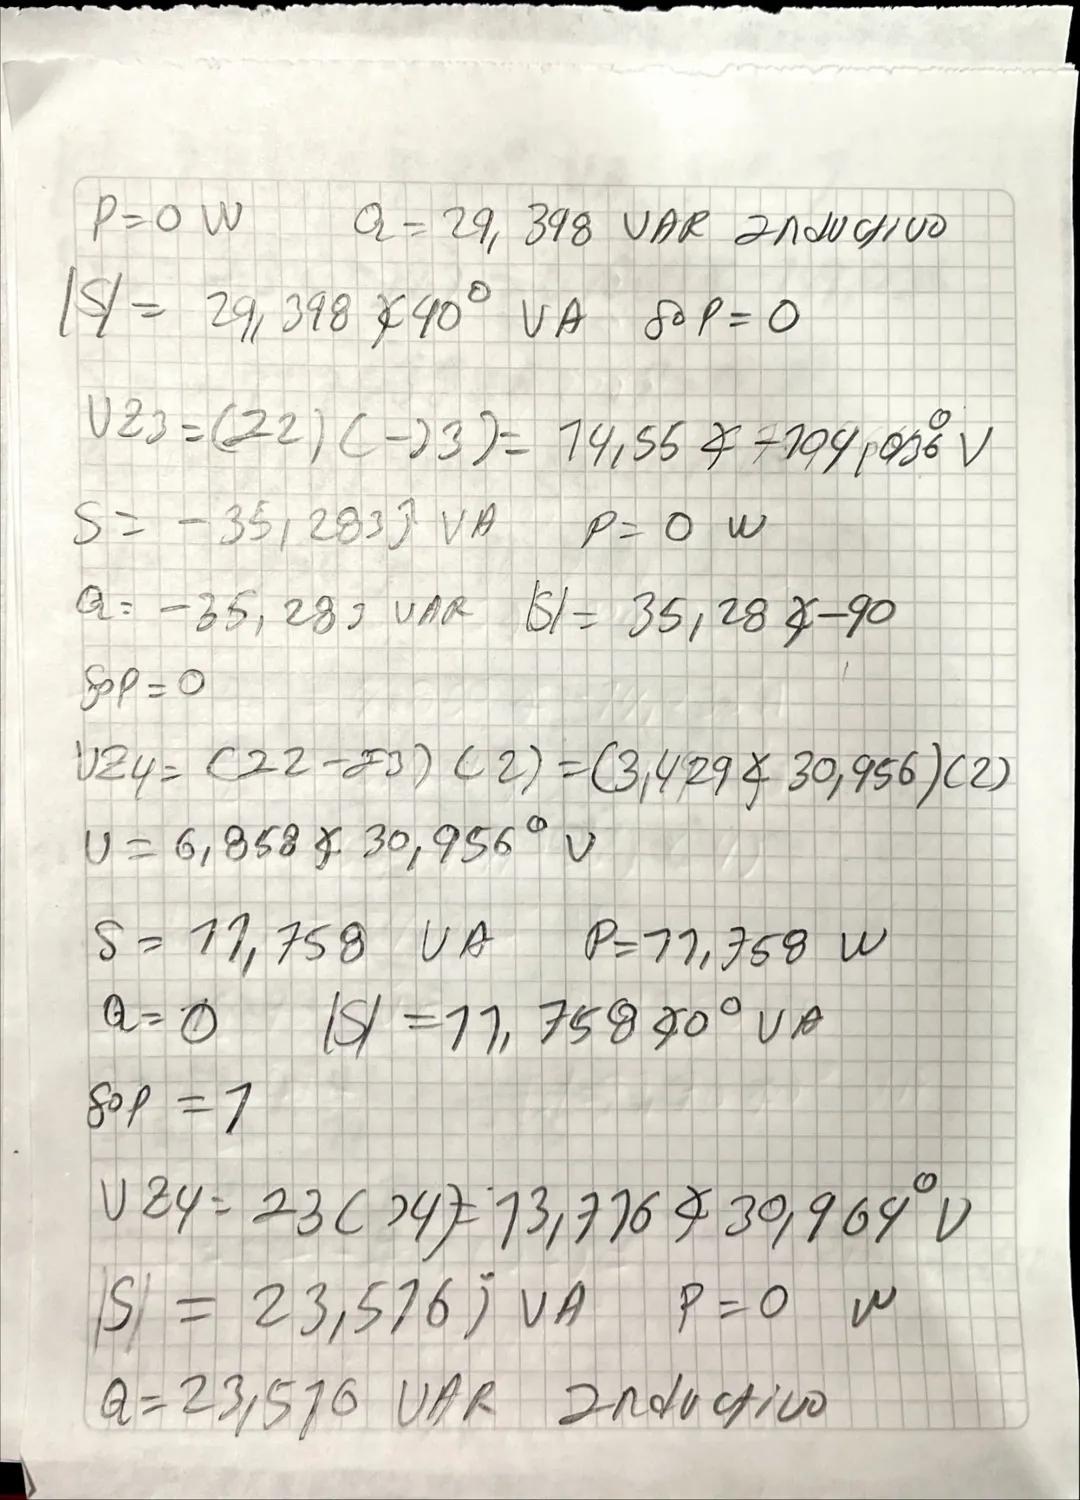 P=0 W Q=29,398 VAR Inductivo
|S|= 29,398 ∡40° VA fop=0
VZ3=(I2)(-J3)= 14,55 ∡ -104, V
S= -35,283j VA P=0 W
Q= -35,283 VAR |S|= 35,28 ∡-90
fop=0
VZ4= (I2-I3)(2)=(3,429∡ 30,956)(2)
V= 6,858∡ 30,956° V
S= 11,758 VA P=11,758 W
Q=0 |S| =11,758∡0° VA
fop =1
VZ4= I3(J4)= 13,716∡30,964° V
|S| = 23,516j VA P=0 W
Q=23,516 VAR Inductivo